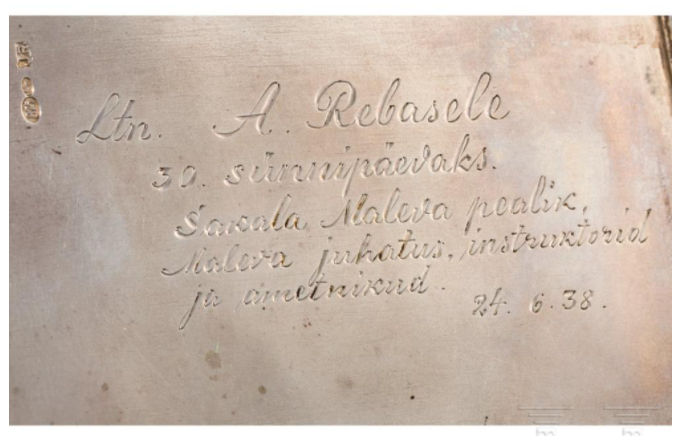 Ltn. A. Rebasele
30. sünnipäevaks.
Sakala Maleva pealik,
Maleva juhatus, instruktorid
ja ametnikud.
24. 6. 38.